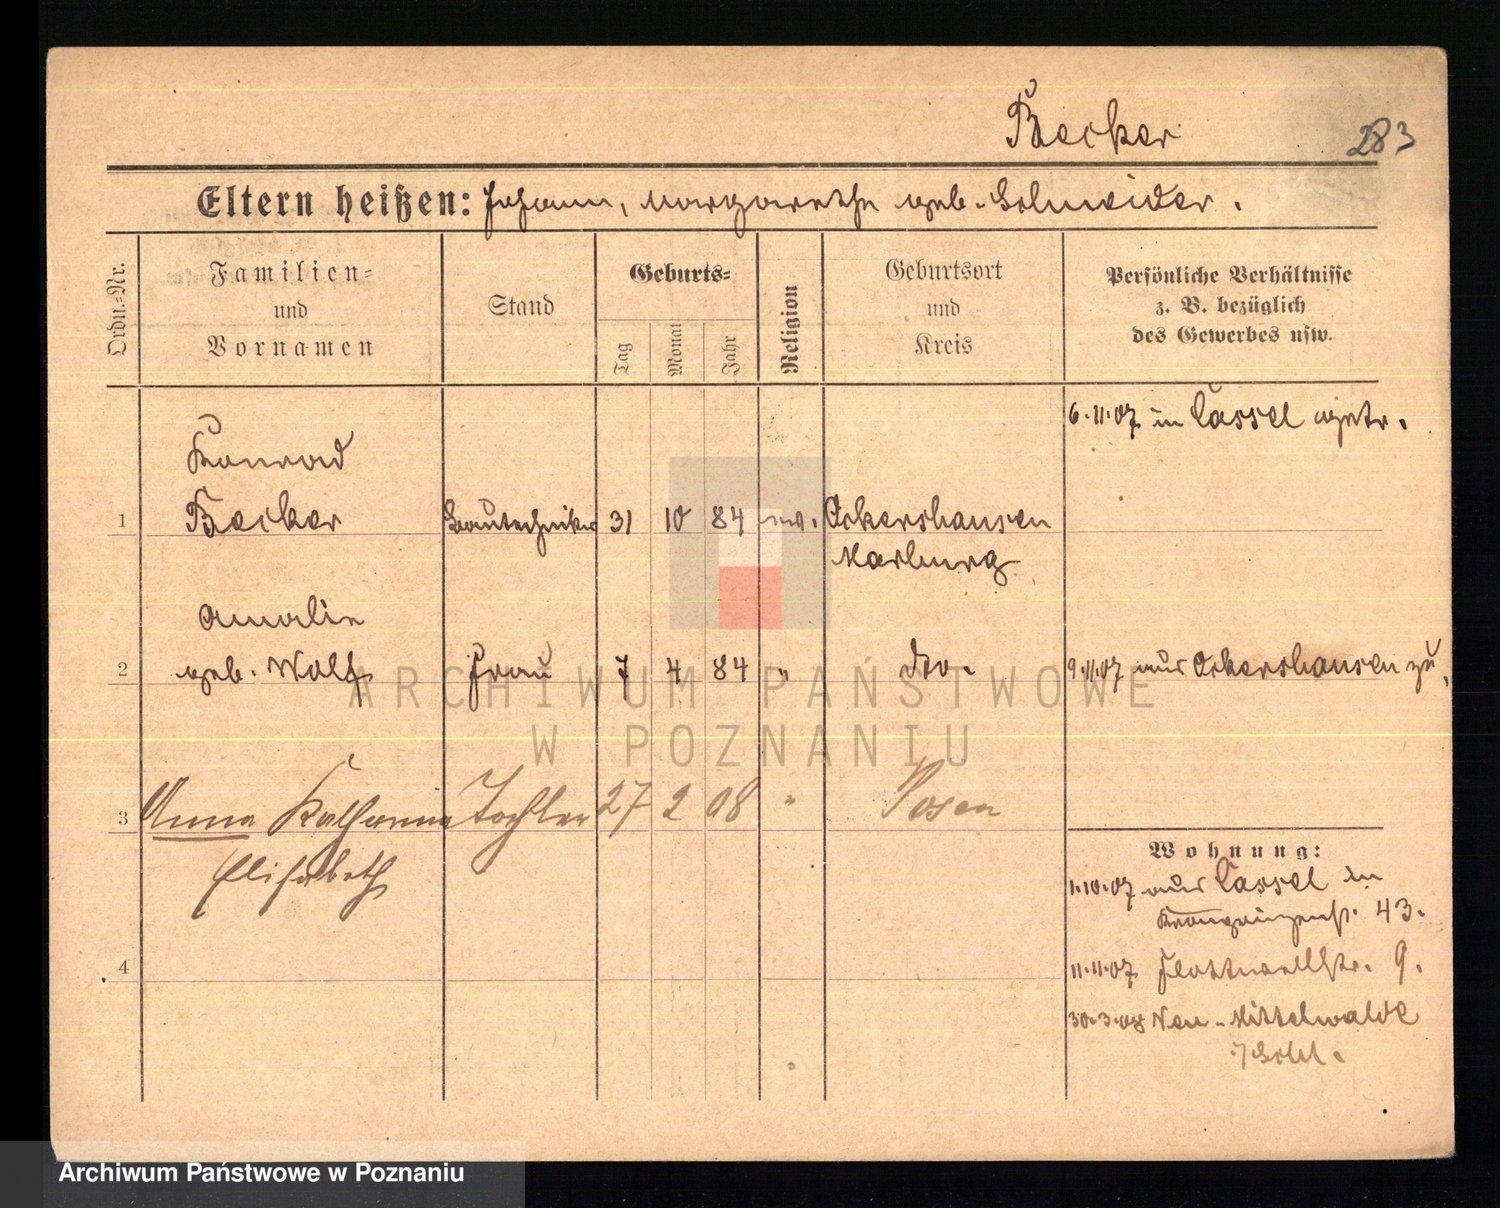 Becker 283
Eltern heißen: Johann, Margarethe geb. Schneider.
Ordn.-Nr.
Familien-
und
Vornamen
Stand
Geburts-
Tag
Monat
Jahr
Religion
Geburtsort
und
Kreis
Persönliche Verhältnisse
z. B. bezüglich
des Gewerbes usw.
6.11.07 in Cassel getr.
Konrad
1 Becker Bautechniker 31 10 84 ev. Ockershausen
Marburg
Amalie
2 geb. Wolf Frau 7 4 84 " dto. 9.11.07 aus Ockershausen zu,
3 Anna Katharina Tochter 27 2 08 " Posen
Elisabeth
4
Wohnung:
1.10.07 aus Cassel in
Kronprinzenst. 43.
11.11.07 Flottwellstr. 9.
30.3.08 Neu-Mittelwalde
i/Schl.
ARCHIWUM PAŃSTWOWE
W POZNANIU
Archiwum Państwowe w Poznaniu